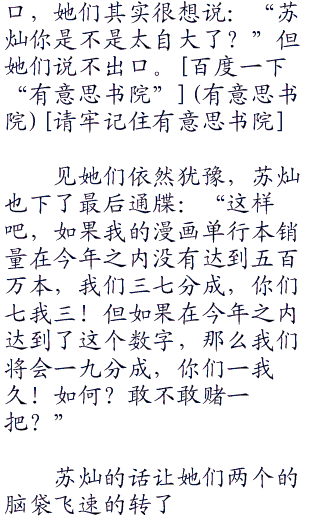 口，她们其实很想说：“苏
灿你是不是太自大了？”但
她们说不出口。[百度一下
“有意思书院”](有意思书
院)[请牢记住有意思书院]
见她们依然犹豫，苏灿
也下了最后通牒：“这样
吧，如果我的漫画单行本销
量在今年之内没有达到五百
万本，我们三七分成，你们
七我三！但如果在今年之内
达到了这个数字，那么我们
将会一九分成，你们一我
久！如何？敢不敢赌一
把？”
苏灿的话让她们两个的
脑袋飞速的转了